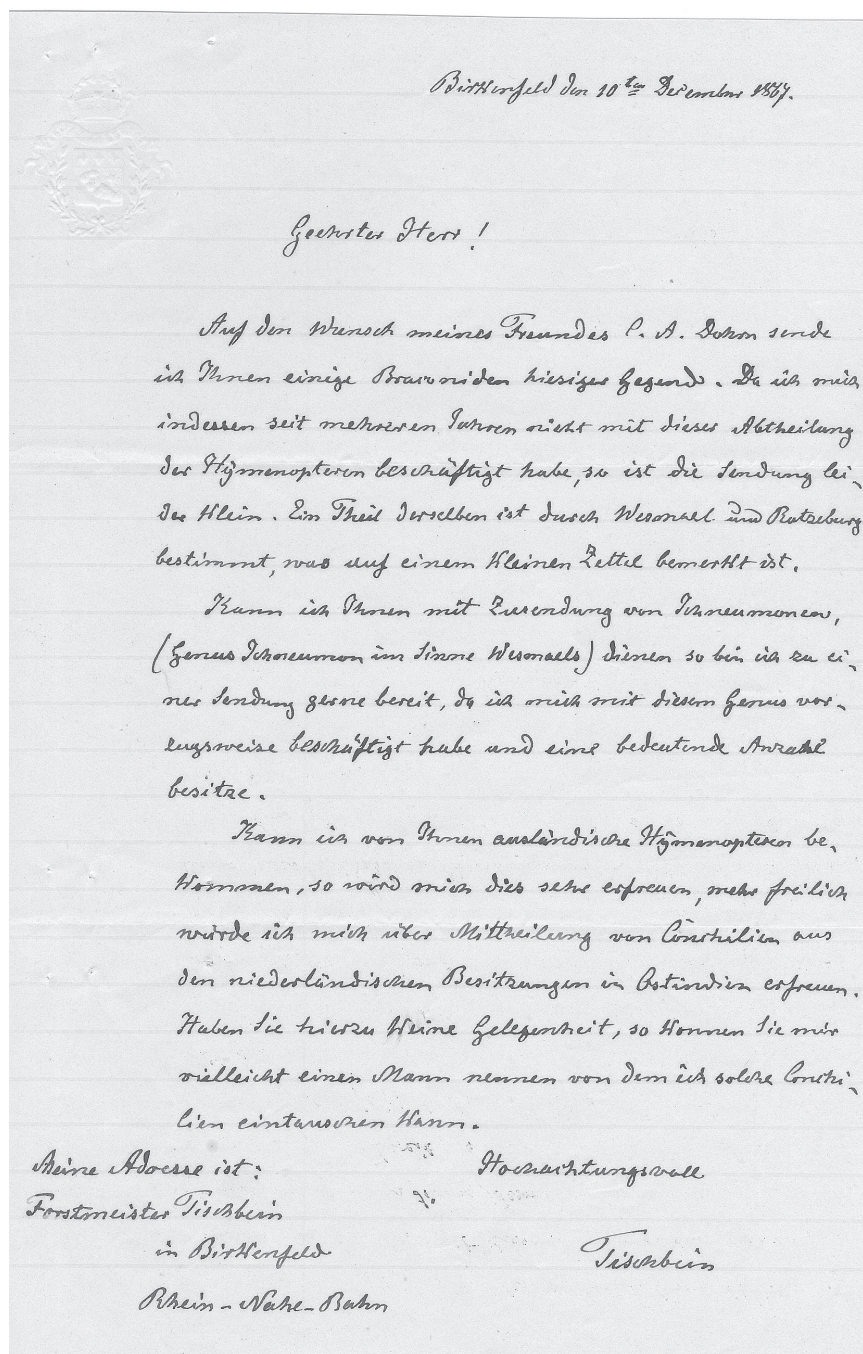 Birkenfeld den 10ten December 1867.
Geehrter Herr!
Auf den Wunsch meines Freundes C. A. Dohrn sende
ich Ihnen einige Braconiden hiesiger Gegend. Da ich mich
indessen seit mehreren Jahren nicht mit dieser Abtheilung
der Hÿmenopteren beschäftigt habe, so ist die Sendung lei-
der klein. Ein Theil derselben ist durch Wesmael und Ratzeburg
bestimmt, was auf einem kleinen Zettel bemerkt ist.
Kann ich Ihnen mit Zusendung von Ichneumonen,
(Genus Ichneumon im Sinne Wesmaels) dienen so bin ich zu ei-
ner Sendung gerne bereit, da ich mich mit diesem Genus vor-
zugsweise beschäftigt habe und eine bedeutende Anzahl
besitze.
Kann ich von Ihnen ausländische Hÿmenopteren be-
kommen, so wird mich dies sehr erfreuen, mehr freilich
würde ich mich über Mittheilung von Conchilien aus
den niederländischen Besitzungen in Ostindien erfreuen.
Haben Sie hierzu keine Gelegenheit, so konnen Sie mir
vielleicht einen Mann nennen von dem ich solche Conchi-
lien eintauschen kann.
Hochachtungsvoll
Tischbein
Meine Adresse ist:
Forstmeister Tischbein
in Birkenfeld
Rhein-Nahe-Bahn